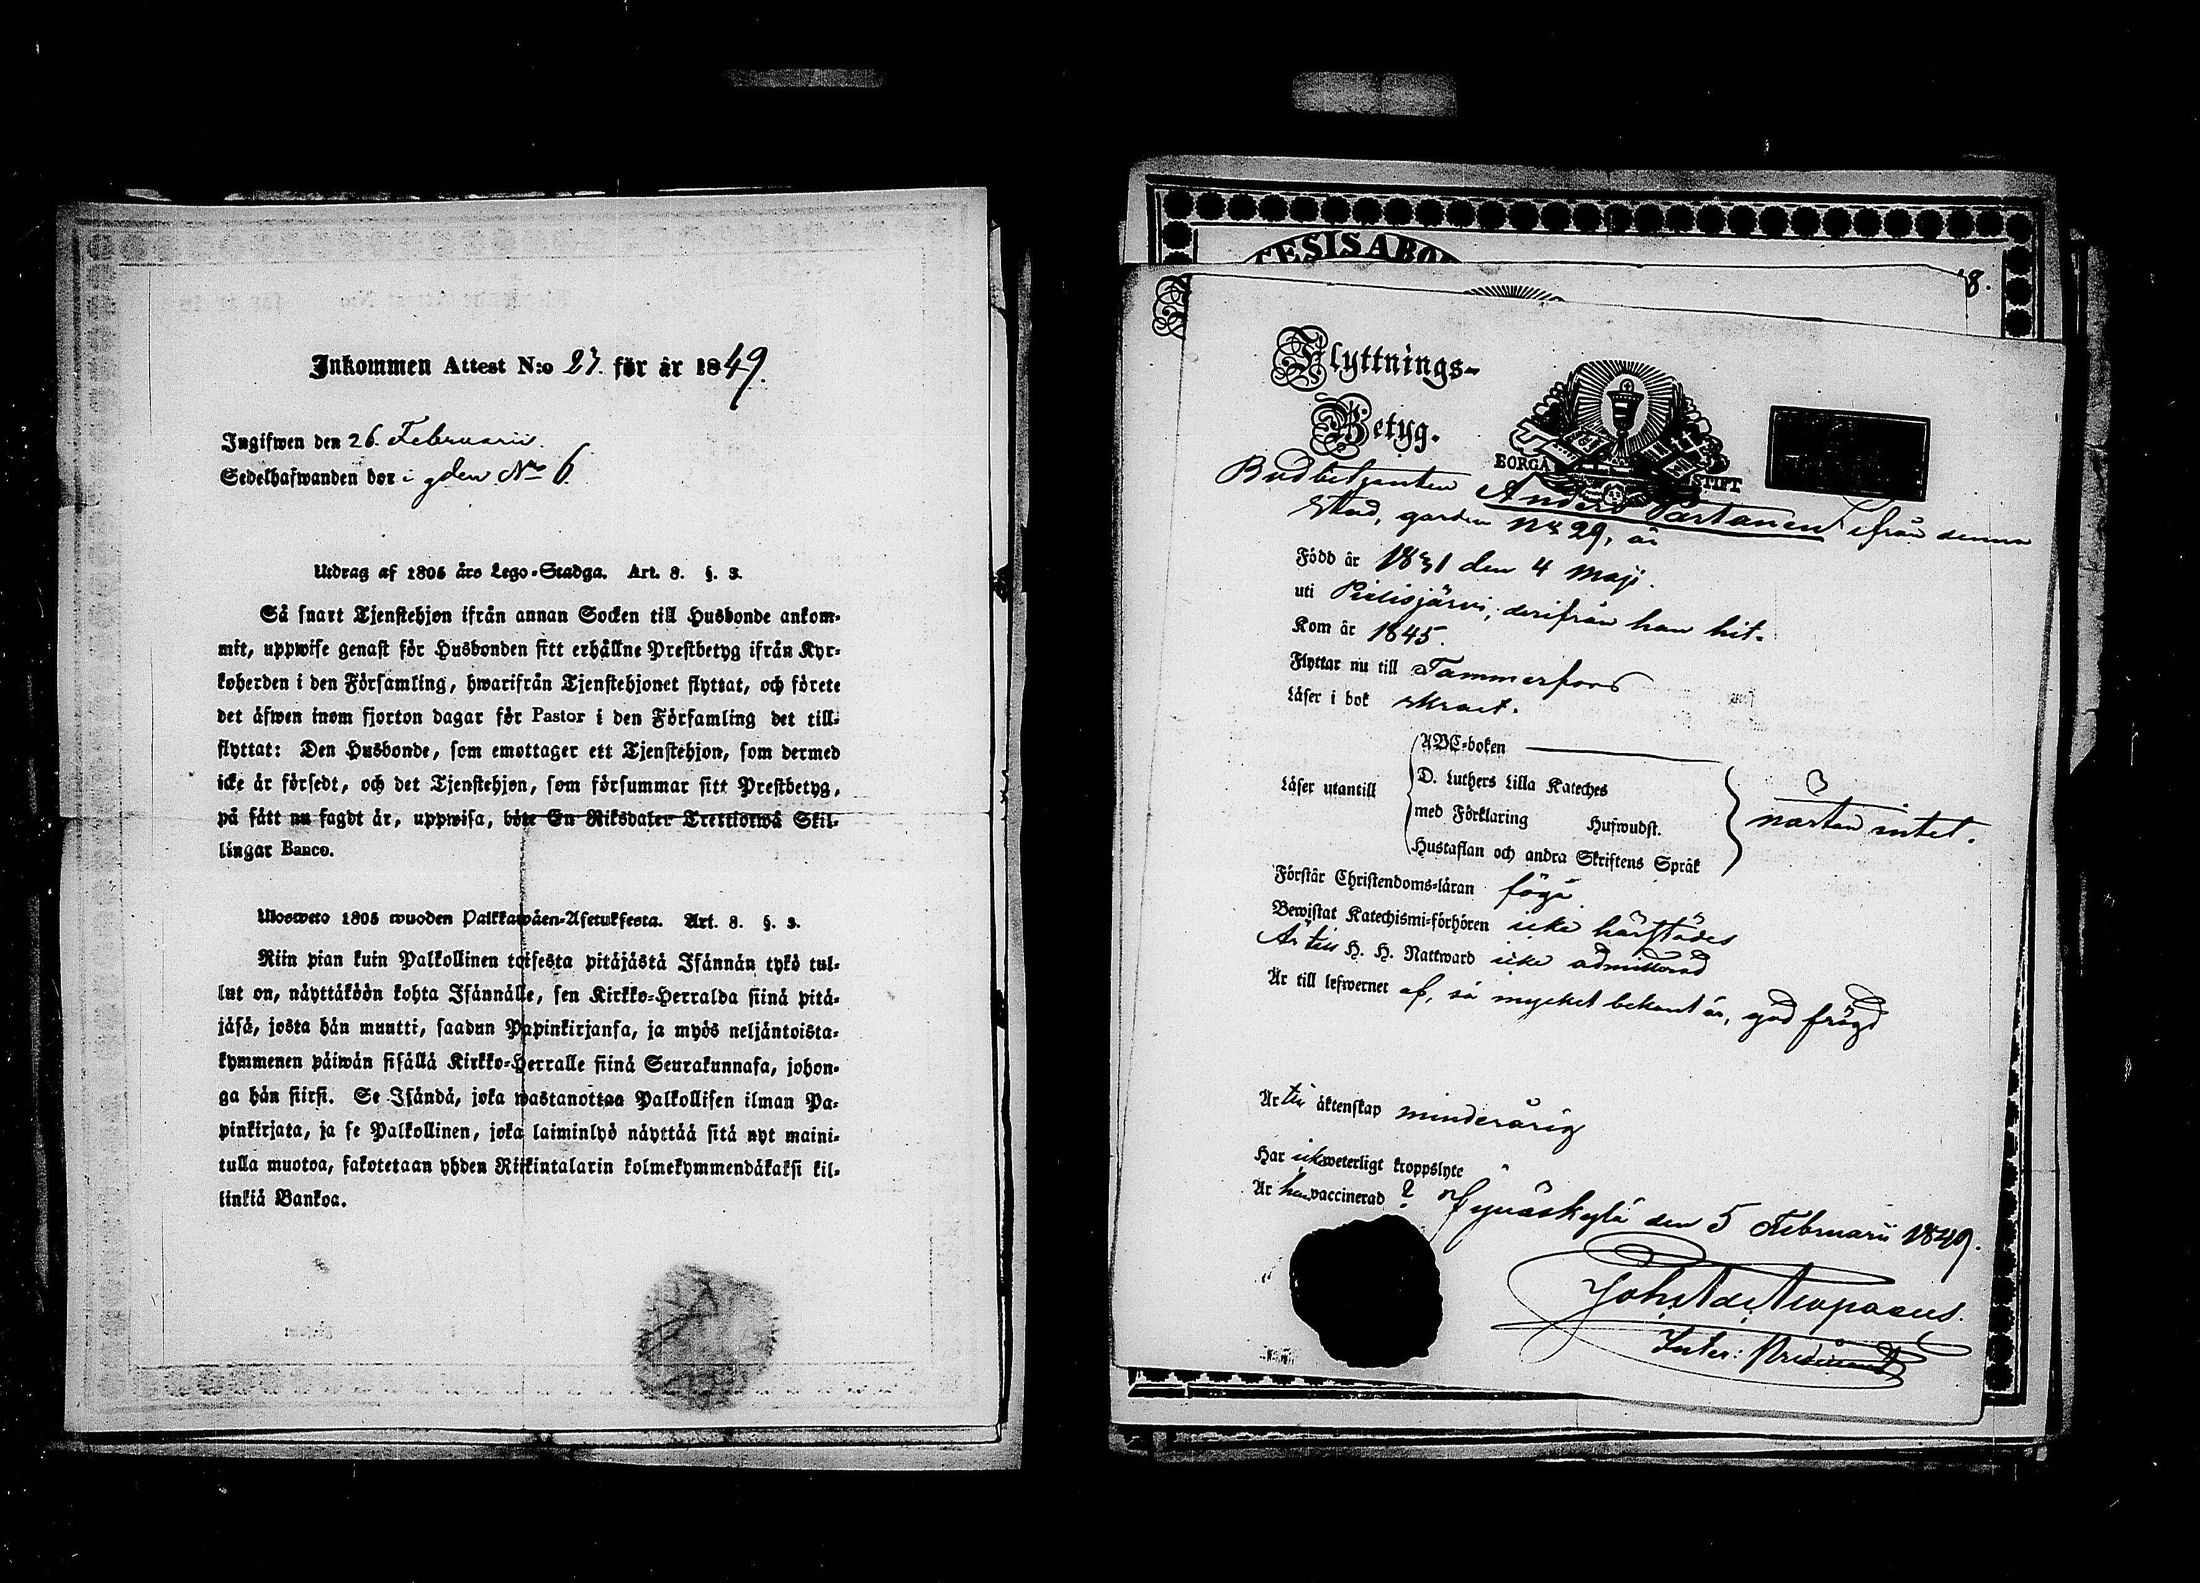 Inkommen Attest N:o 23 för år 1849.
Ingifwen den 26 Februarii.
Sedelhafwanden bor i gden No 6
Utdrag af 1805 års Lego-Stadga. Art. 8. §. 3.
Så snart Tjenstehjon ifrån annan Socken till Husbonde ankom-
mit, uppwise genast för Husbonden sitt erhållne Prestbetyg ifrån Kyr-
koherden i den Församling, hwarifrån Tjenstehjonet flyttat, och förete
det äfwen inom fjorton dagar för Pastor i den Församling det till-
flyttat: Den Husbonde, som emottager ett Tjenstehjon, som dermed
icke är försedt, och det Tjenstehjon, som försummar sitt Prestbetyg,
på sätt nu sagdt är, uppwisa, böte En Riksdaler Trettiotwå Skil-
lingar Banco.
Ulosweto 1805 wuoden Palkkawäen-Asetuksesta. Art. 8. §. 3.
Niin pian kuin Palkollinen toisesta pitäjästä Isännän tykö tul-
lut on, näyttäköön kohta Isännälle, sen Kirkko-Herralda siinä pitä-
jäsä, josta hän muutti, saadun Papinkirjansa, ja myös neljäntoista-
kymmenen päiwän sisällä Kirkko-Herralle siinä Seurakunnasa, johon-
ga hän siirsi. Se Isändä, joka wastanottaa Palkollisen ilman Pa-
pinkirjata, ja se Palkollinen, joka laiminlyö näyttää sitä nyt maini-
tulla muotoa, sakotetaan yhden Riikintalarin kolmekymmendäkaksi kil-
linkiä Bankoa.
8.
Flyttnings-
Betyg.
BORGÅ STIFT
Anders Partanen ifrån denna
Stad, gården No 29, är
Född år 1831 den 4 Maji.
uti Pielisjärvi, derifrån han hit.
Kom år 1845.
Flyttar nu till Tammerfors
Läser i bok
Läser utantill
ABC-boken
D. Luthers Lilla Kateches
med Förklaring Hufwudst.
Hustaflan och andra Skriftens Språk
nästan intet.
Förstår Christendoms-läran föga
Bewistat Katechismi-förhören icke härstädes
Är till H. H. Nattward icke admitterad
Är till lefwernet af, så mycket bekant är, god frägd
Är till äktenskap minderårig
Har icke weterligt kroppslyte
Är han vaccinerad ?
Jyväskylä den 5 Februarii 1849.